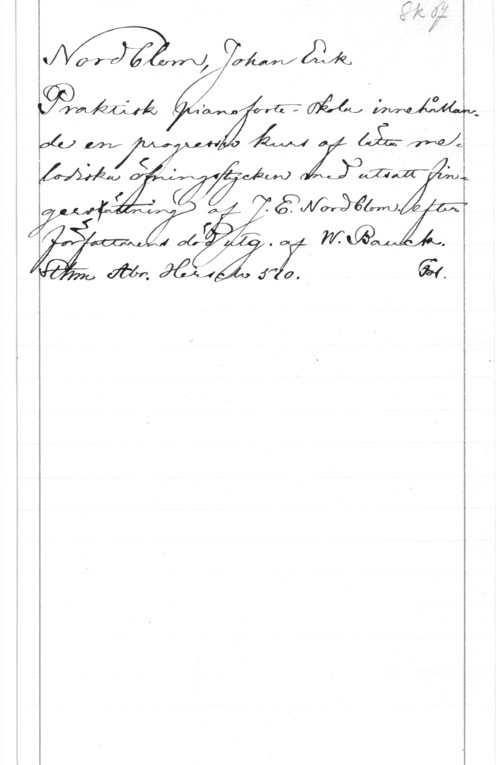 Sk of
Nordblom, Johan Erik
Praktisk pianoforte-skola innehållan-
de en progressiv kurs af lätta me-
lodiska öfningsstycken med utsatt fin-
gersättning af J. E. Nordblom, efter
författarens död utg. af W. Bauck.
Sthm Abr. Hirsch
Fol.